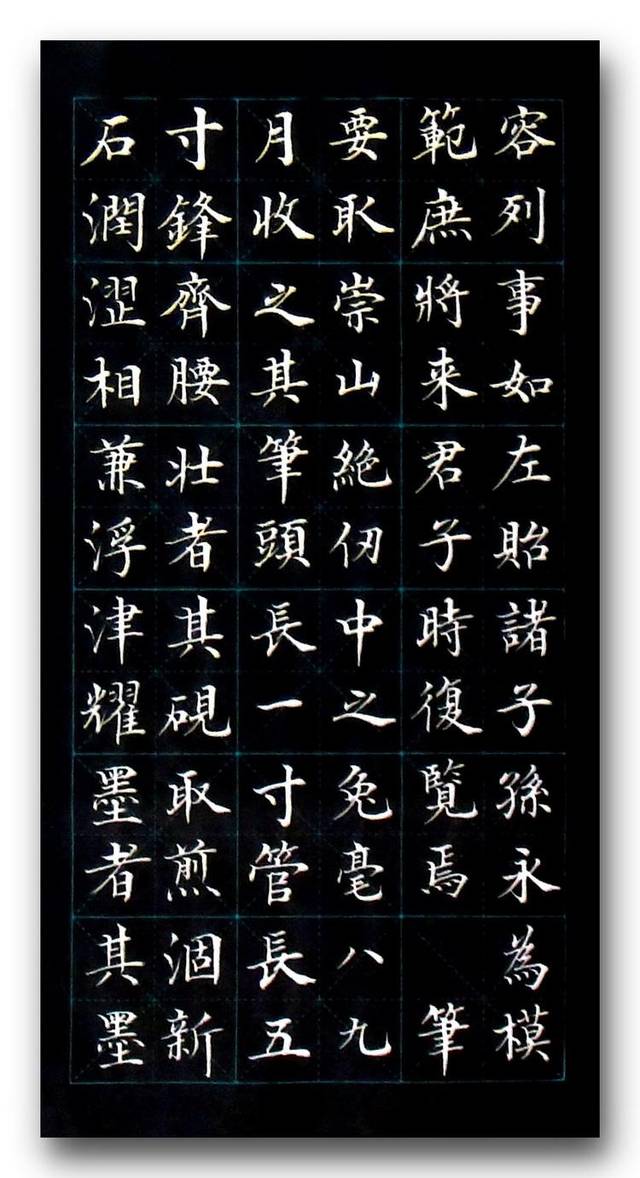 容列事如左貽諸子孫永為模
範庶將来君子時復覽焉 筆
要取崇山絕仞中之兔毫八九
月收之其筆頭長一寸管長五
寸鋒齊腰壯者其硯取煎涸新
石潤澀相兼浮津耀墨者其墨